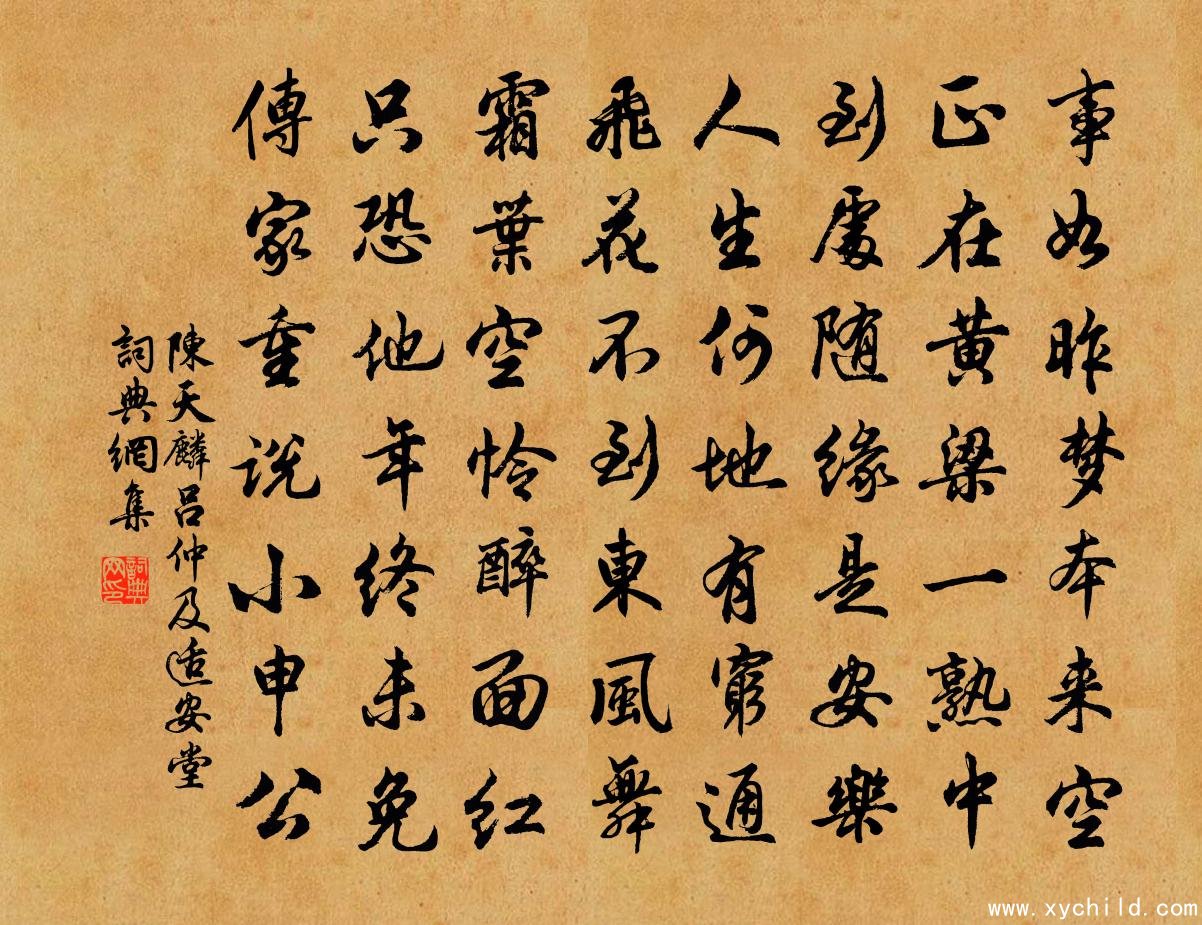 事如昨梦本来空
正在黄粱一熟中
到處随缘是安樂
人生何地有窮通
飛花不到東風舞
霜葉空怜醉面红
只恐他年终未免
傳家重说小申公
陳天麟吕仲及适安堂
詞典網集
詞典网印
www.xychild.com